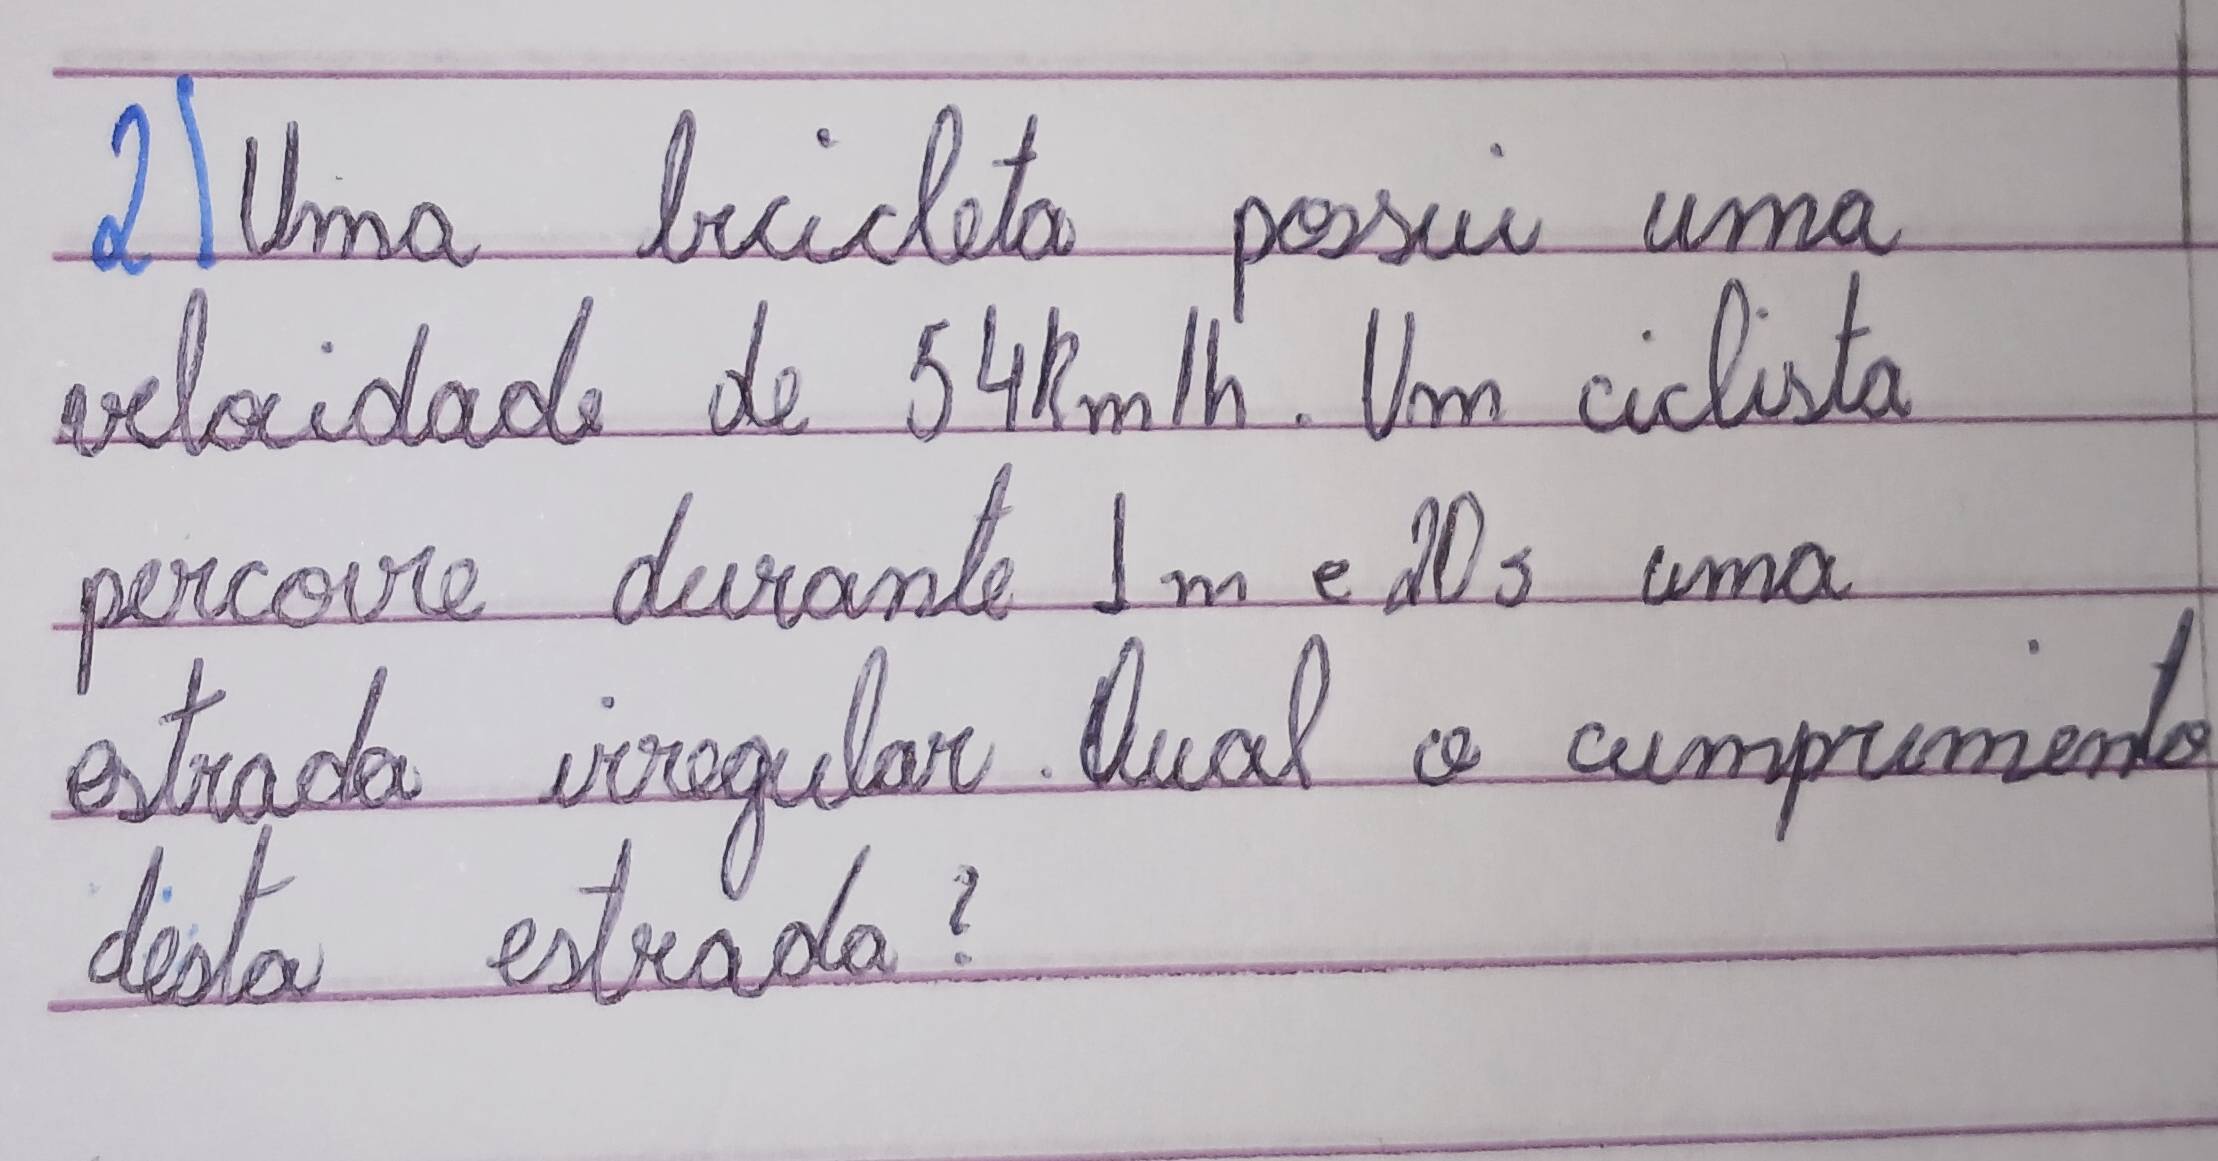 2) Uma bicicleta possui uma
velocidade de 54km/h. Um ciclista
percorre durante 1m e 20s uma
estrada irregular. Qual o cumprimento
desta estrada?